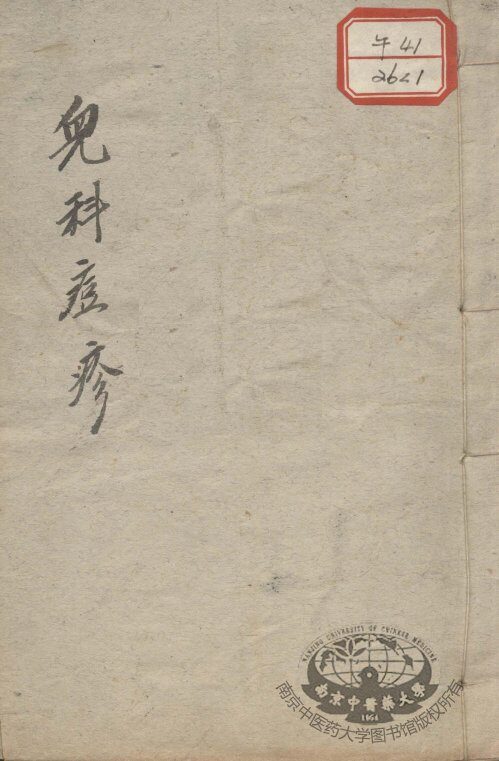 午41
2621
兒科痘疹
NANJING UNIVERSITY OF CHINESE MEDICINE
南京中醫藥大學
1954
南京中医药大学图书馆版权所有